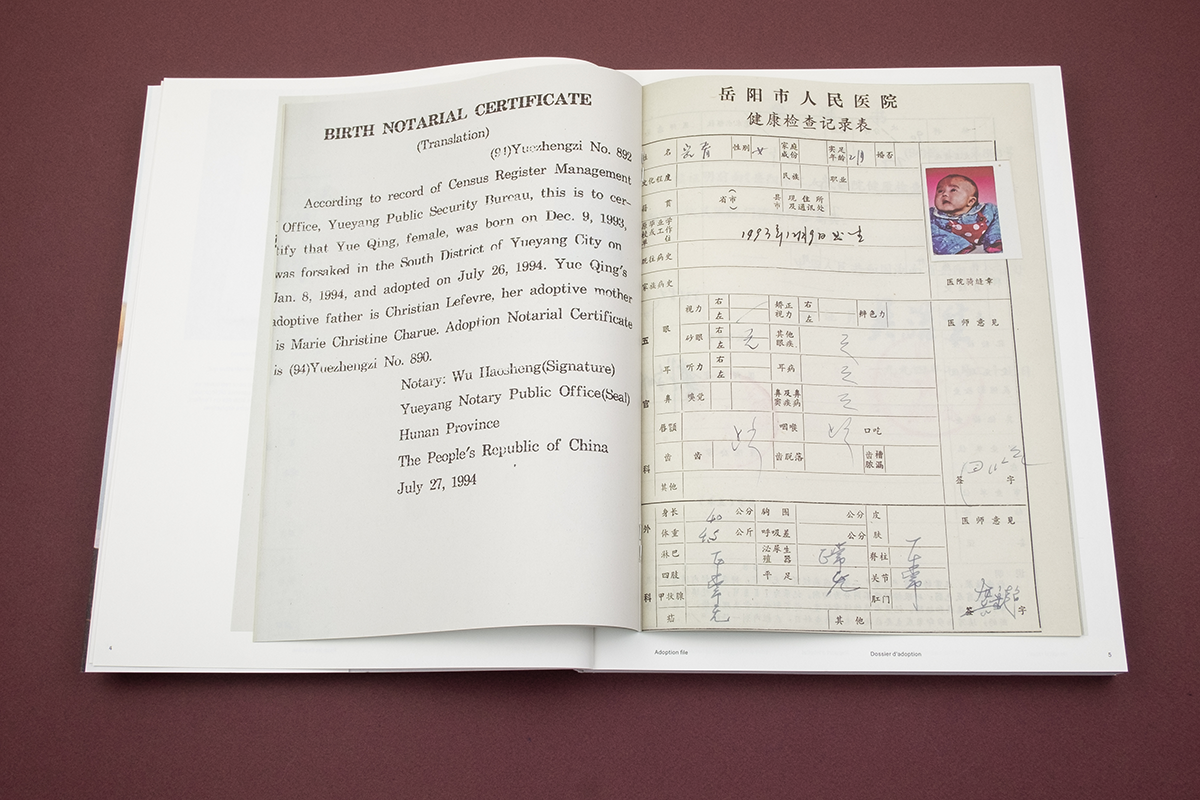 BIRTH NOTARIAL CERTIFICATE
(Translation)
(94)Yuezhengzi No. 892
According to record of Census Register Management
Office, Yueyang Public Security Bureau, this is to cer-
tify that Yue Qing, female, was born on Dec. 9, 1993,
was forsaken in the South District of Yueyang City on
Jan. 8, 1994, and adopted on July 26, 1994. Yue Qing's
adoptive father is Christian Lefevre, her adoptive mother
is Marie Christine Charue. Adoption Notarial Certificate
is (94)Yuezhengzi No. 890.
Notary: Wu Haosheng(Signature)
Yueyang Notary Public Office(Seal)
Hunan Province
The People's Republic of China
July 27, 1994
4
岳阳市人民医院
健康检查记录表
姓名 岳青 性别 女 家庭成份 实足年龄 2月 婚否
文化程度 民族 职业
籍贯 省市 县市 现住所及通讯处
原毕业学校或工作单位 1993年12月9日出生
既往病史
家族病史
医院骑缝章
五官科
眼 视力 右 左 矫正视力 右 左 辨色力
医师意见
砂眼 右 左 无 其他眼疾 无
耳 听力 右 左 耳病 无
鼻 嗅觉 鼻及鼻窦疾病 无
唇颚 咽喉 口吃
齿 齿 齿脱落 齿槽脓漏
签字
其他
外科
身长 公分 胸围 公分 皮肤
医师意见
体重 4.5 公斤 呼吸差 公分
淋巴 泌尿生殖器 正常 脊柱
四肢 平足 无 关节
甲状腺 肛门
疝 无 其他
签字
Adoption file
Dossier d'adoption
5